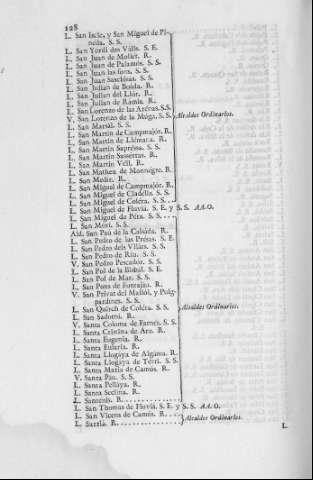 128
L. San Iscle, y San Miguel de Pi-
neda. S. S.
L. San Yordi des Válls. S. E.
L. San Juan de Mollet. R.
L. San Juan de Palamós. S. S.
L. San Juan las fons. S. S.
L. San Juan Sasclósas. S. S.
L. San Julian de Boáda. R.
L. San Julian del Llór. R.
L. San Julian de Ramis. R.
L. San Lorenzo de las Arénas. S. S.
V. San Lorenzo de la Múga. S. S. Alcaldes Ordinarios.
L. San Marsál. S. S.
L. San Martin de Campmajór. R.
L. San Martin de Llémana. R.
L. San Martin Saprésa. S. S.
L. San Martin Sasserras. R.
L. San Martin Vell. R.
L. San Matheu de Montnégre. R.
L. San Medir. R.
L. San Miguel de Campmajór. R.
L. San Miguel de Cladélls. S. S.
L. San Miguel de Coléra. S. S.
L. San Miguel de Fluvia. S. E. y S. S. AA. O.
L. San Miguel de Péra. S. S.
L. San Mori. S. S.
Ald. San Pau de la Calsáda. R.
L. San Pedro de las Présas. S. E.
L. San Pedro dels Vilárs. S. S.
L. San Pedro de Riu. S. S.
V. San Pedro Pescadór. S. S.
L. San Pol de la Bisbál. S. E.
L. San Pol de Mar. S. S.
L. San Pons de Fontajáu. R.
V. San Privat del Mallól, y Puig-
pardines. S. S.
L. San Quirch de Coléra. S. S. Alcaldes Ordinarios.
L. San Sadorni. R.
V. Santa Coloma de Farnés. S. S.
L. Santa Cristina de Aro. R.
L. Santa Eugenia. R.
L. Santa Eularia. R.
L. Santa Llogaya de Algáma. R.
L. Santa Llogaya de Térri. S. S.
L. Santa Maria de Camós. R.
V. Santa Pau. S. S.
L. Santa Pelláya. R.
L. Santa Seclina. R.
L. Santenis. R.
L. San Thomas de Fluviá. S. E. y S. S. AA. O.
L. San Vicens de Camós. R. Alcaldes Ordinarios.
L. Sarriá. R.
L.